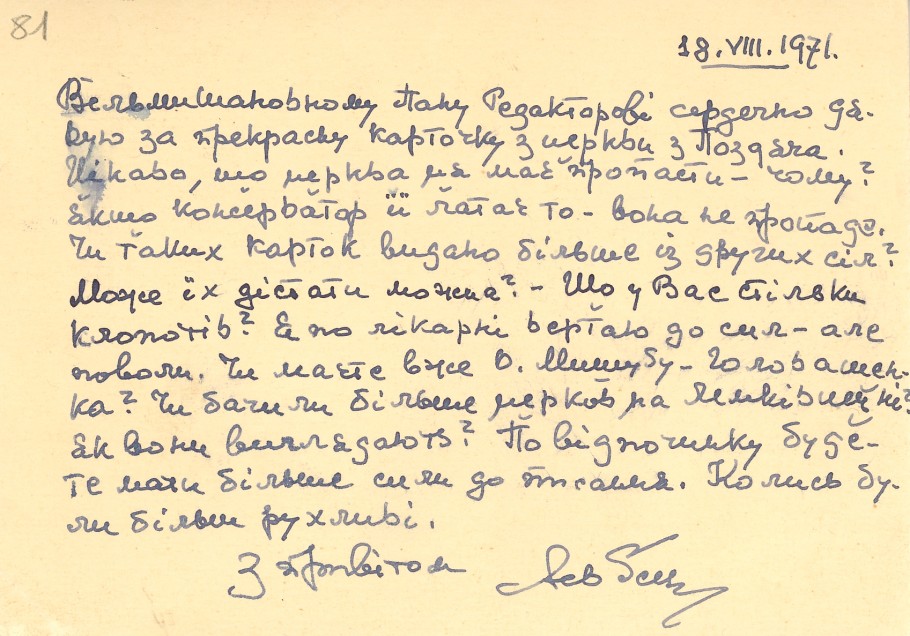 81
18.VIII.1971.
Вельмишановному Пану Редакторові сердечно дя-
кую за прекрасну карточку з церкви з Поздяча.
Цікаво, що церква не має пропасти – чому?
Якщо консерватор її латає то – вона не пропаде.
Чи таких карток видано більше із других сіл?
Може їх дістати можна? – Що у Вас стільки
клопотів? Я по лікарні вертаю до сил – але
поволи. Чи маєте вже О. – Головащен-
ка? Чи бачили більше церков на Лемківщині?
Як вони виглядають? По відпочинку буде-
те мати більше сили до писання. Колись бу-
ли більш рухливі.
З привітом Лев